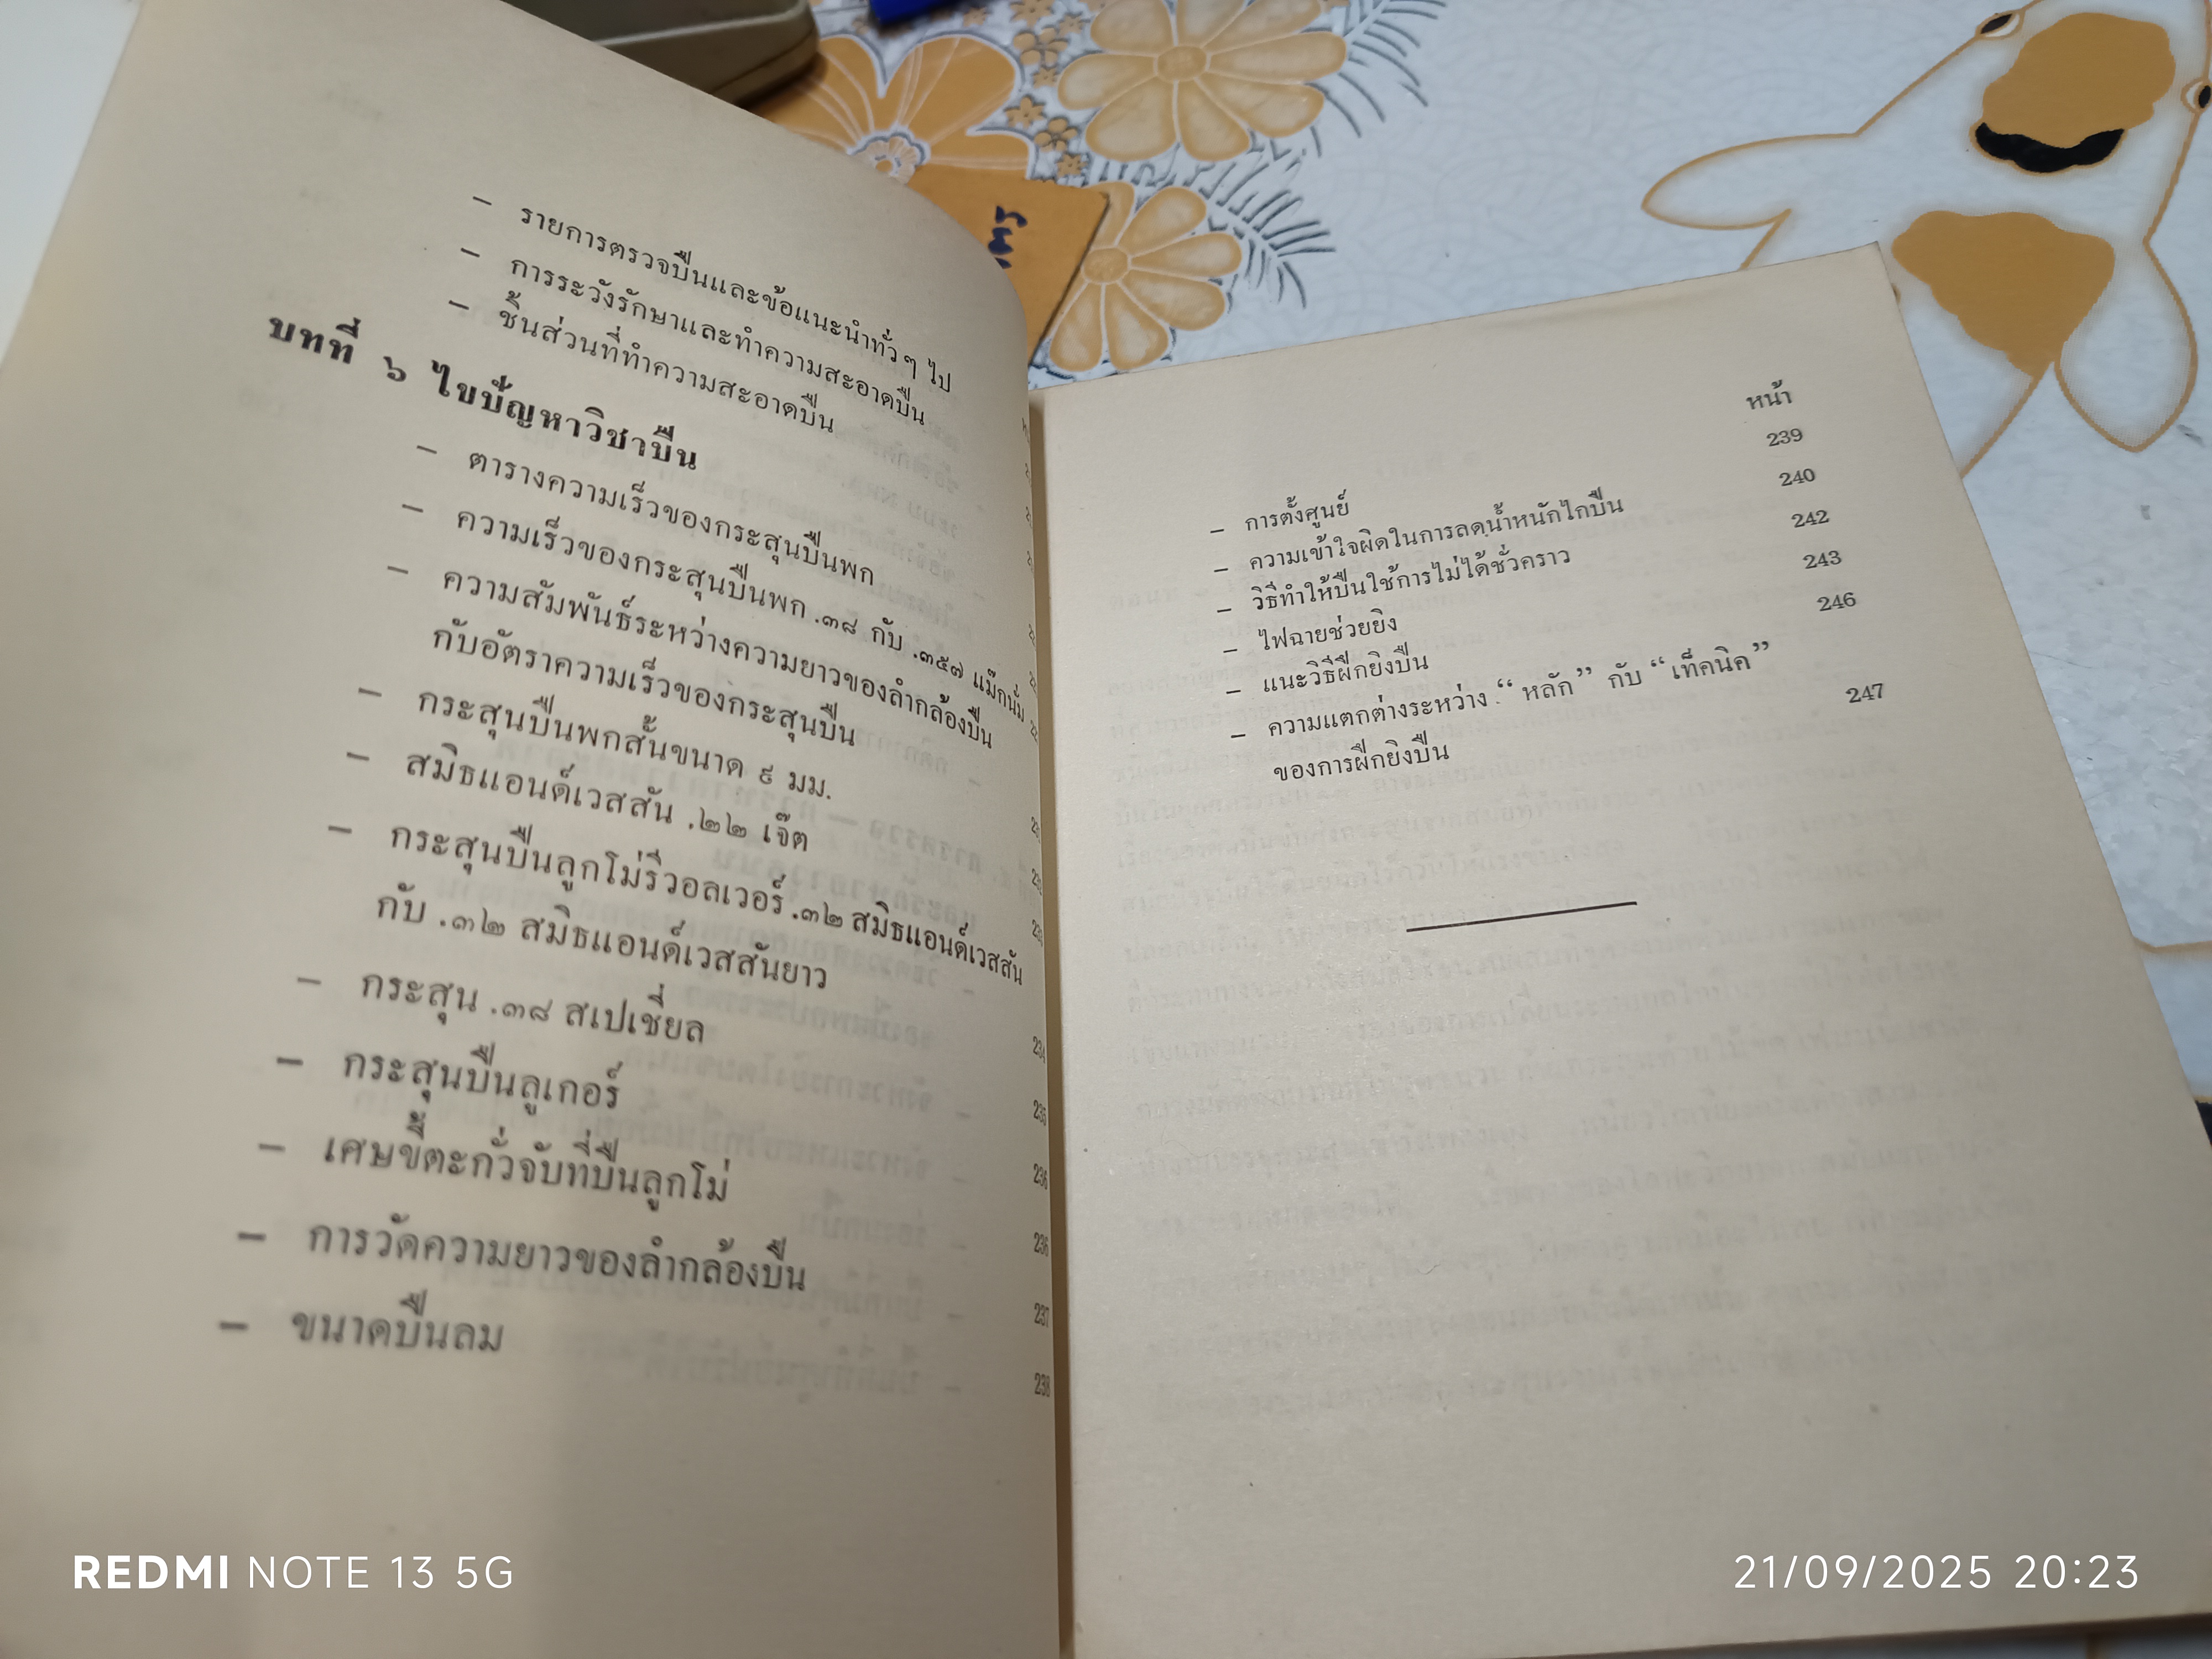 – รายการตรวจปืนและข้อแนะนำทั่วๆ ไป
– การระวังรักษาและทำความสะอาดปืน
– ชิ้นส่วนที่ทำความสะอาดปืน
บทที่ ๖ ไขปัญหาวิชาปืน
– ตารางความเร็วของกระสุนปืนพก
– ความเร็วของกระสุนปืนพก .๓๘ กับ .๓๕๗ แม็กนั่ม
– ความสัมพันธ์ระหว่างความยาวของลำกล้องปืน
กับอัตราความเร็วของกระสุนปืน
– กระสุนปืนพกสั้นขนาด ๙ มม.
– สมิธแอนด์เวสสัน .๒๒ เจ๊ต
– กระสุนปืนลูกโม่รีวอลเวอร์ .๓๒ สมิธแอนด์เวสสัน
กับ .๓๒ สมิธแอนด์เวสสันยาว
– กระสุน .๓๘ สเปเชี่ยล 234
– กระสุนปืนลูเกอร์ 235
– เศษขี้ตะกั่วจับที่ปืนลูกโม่ 236
– การวัดความยาวของลำกล้องปืน 236
– ขนาดปืนลม 237
238
หน้า
– การตั้งศูนย์ 239
– ความเข้าใจผิดในการลดน้ำหนักไกปืน 240
– วิธีทำให้ปืนใช้การไม่ได้ชั่วคราว 242
– ไฟฉายช่วยยิง 243
– แนะวิธีฝึกยิงปืน 246
– ความแตกต่างระหว่าง “หลัก” กับ “เท็คนิค”
ของการฝึกยิงปืน 247
REDMI NOTE 13 5G
21/09/2025 20:23